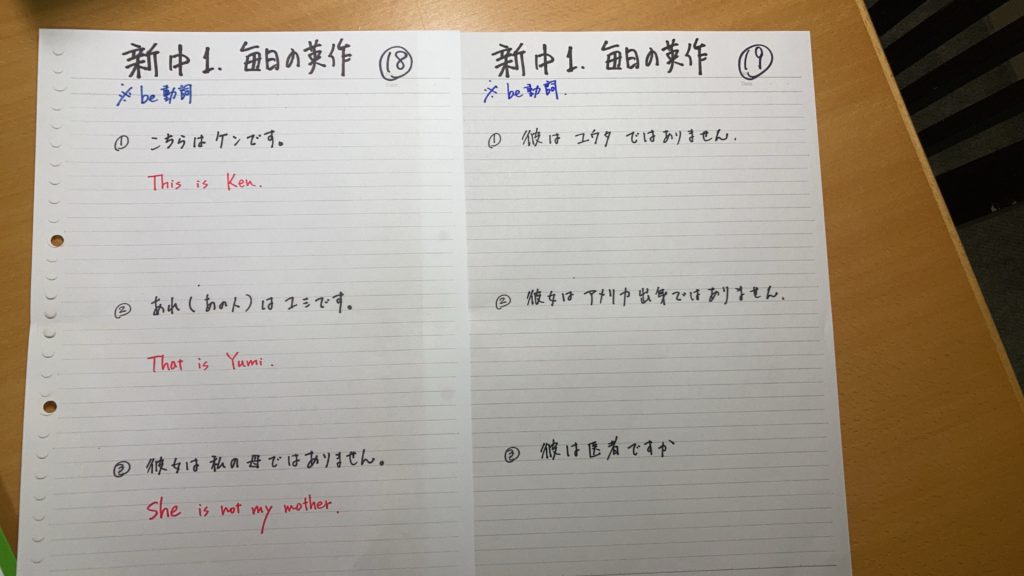 新中1. 毎日の英作 ⑱
※be動詞
① こちらはケンです。
This is Ken.
② あれ(あの人)はユミです。
That is Yumi.
③ 彼女は私の母ではありません。
She is not my mother.
新中1. 毎日の英作 ⑲
※be動詞.
① 彼はユウタではありません.
② 彼女はアメリカ出身ではありません.
③ 彼は医者ですか